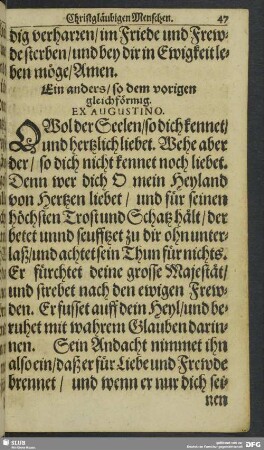 Christgläubigen Menschen. 47
dig verharren/ im Friede und Frew-
de sterben/ und bey dir in Ewigkeit le-
ben möge/ Amen.
Ein anders/ so dem vorigen
gleichförmig.
EX AUGUSTINO.
O Wol der Seelen/ so dich kennet/
und hertzlich liebet. Wehe aber
der/ so dich nicht kennet noch liebet.
Denn wer dich O mein Heyland
von Hertzen liebet/ und für seinen
höchsten Trost und Schatz hält/ der
betet unnd seufftzet zu dir ohn unter-
laß/ und achtet sein Thun für nichts.
Er fürchtet deine grosse Majestät/
und strebet nach den ewigen Frew-
den. Er fusset auff dein Heyl/ und be-
ruhet mit wahrem Glauben darin-
nen. Sein Andacht nimmet ihn
also ein/ daß er für Liebe und Frewde
brennet/ und wenn er nur dich sei-
nen
SLUB
DFG